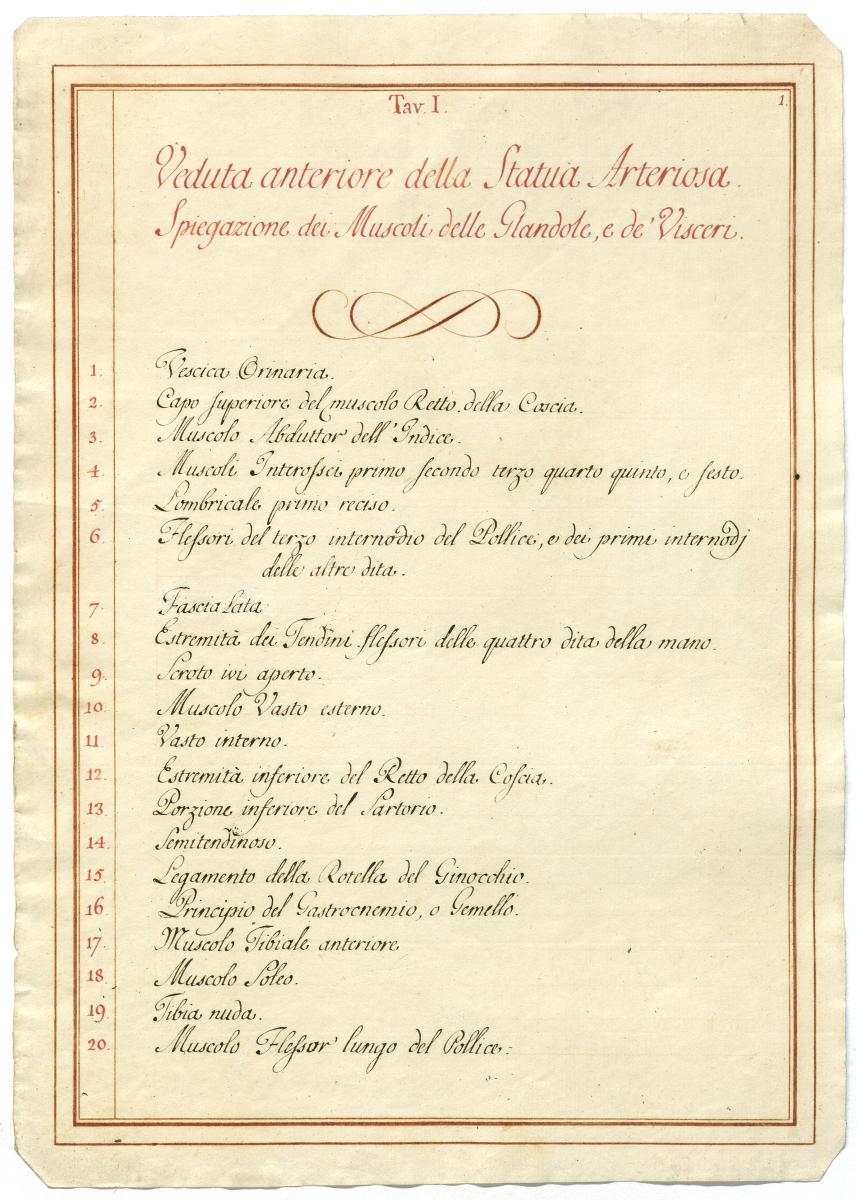 Tav. I.
1.
Veduta anteriore della Statua Arteriosa.
Spiegazione dei Muscoli delle Glandole, e de' Visceri.
1. Vescica Orinaria.
2. Capo superiore del muscolo Retto della Coscia.
3. Muscolo Abduttor dell'Indice.
4. Muscoli Interossei primo secondo terzo quarto quinto, e sesto.
5. Lombricale primo reciso.
6. Flessori del terzo internodio del Pollice, e dei primi internodj
delle altre dita.
7. Fascia Lata
8. Estremità dei Tendini flessori delle quattro dita della mano.
9. Scroto ivi aperto.
10. Muscolo Vasto esterno.
11. Vasto interno.
12. Estremità inferiore del Retto della Coscia.
13. Porzione inferiore del Sartorio.
14. Semitendinoso.
15. Legamento della Rotella del Ginocchio.
16. Principio del Gastrocnemio, o Gemello.
17. Muscolo Tibiale anteriore
18. Muscolo Soleo.
19. Tibia nuda.
20. Muscolo Flessor lungo del Pollice.